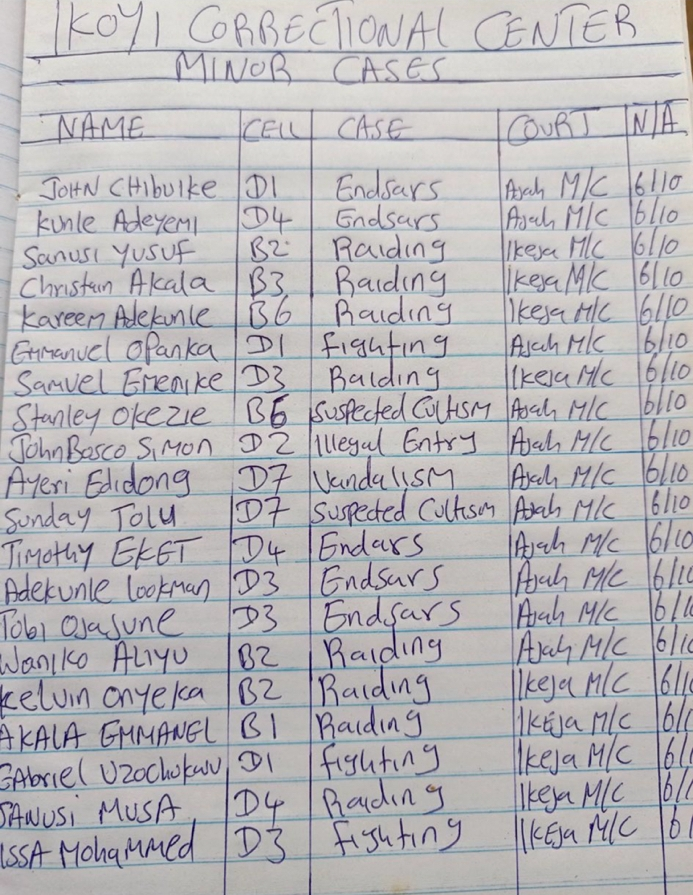 IKOYI CORRECTIONAL CENTER
MINOR CASES
NAME CELL CASE COURT N/A
JOHN CHIBUIKE D1 Endsars Ajah M/C 6/10
Kunle Adeyemi D4 Endsars Ajah M/C 6/10
Sanusi YUSUF B2 Raiding Ikeja M/C 6/10
Christain Akala B3 Raiding Ikeja M/C 6/10
Kareem Adekunle B6 Raiding Ikeja M/C 6/10
Emmanuel Opanka D1 Fighting Ajah M/C 6/10
Samuel Emenike D3 Raiding Ikeja M/C 6/10
Stanley Okezie B6 Suspected Cultism Ajah M/C 6/10
John Bosco Simon D2 Illegal Entry Ajah M/C 6/10
Ayeri Edidong D7 Vandalism Ajah M/C 6/10
Sunday Tolu D7 Suspected Cultism Ajah M/C 6/10
Timothy EKET D4 Endars Ajah M/C 6/10
Adekunle lookman D3 Endsars Ajah M/C 6/10
Tobi Ojasune D3 Endsars Ajah M/C 6/1
Waniko ALIYU B2 Raiding Ajah M/C 6/1
Kelvin Onyeka B2 Raiding Ikeja M/C 6/1
AKALA EMMANEL B1 Raiding IKEja M/C 6/
GAbriel Uzochukwu D1 Fighting Ikeja M/C 6/
SANUSI MUSA D4 Raiding Ikeja M/C 6/
ISSA Mohammed D3 Fighting IKEja M/C 6